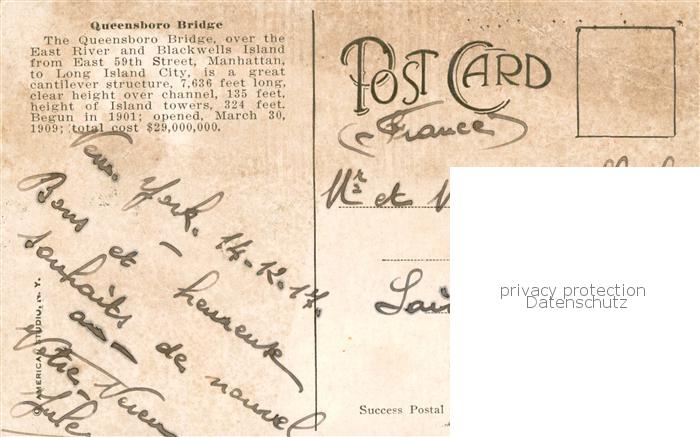 Queensboro Bridge
The Queensboro Bridge, over the
East River and Blackwells Island
from East 59th Street, Manhattan,
to Long Island City, is a great
cantilever structure, 7,636 feet long,
clear height over channel, 135 feet,
height of Island towers, 324 feet.
Begun in 1901; opened, March 30,
1909; total cost $29,000,000.
York. 14-12-17.
Bons et heureux
souhaits de nouvel
an
Votre
© AMERICAN STUDIO, N. Y.
POST CARD
(France)
Mr et
privacy protection
Datenschutz
Success Postal